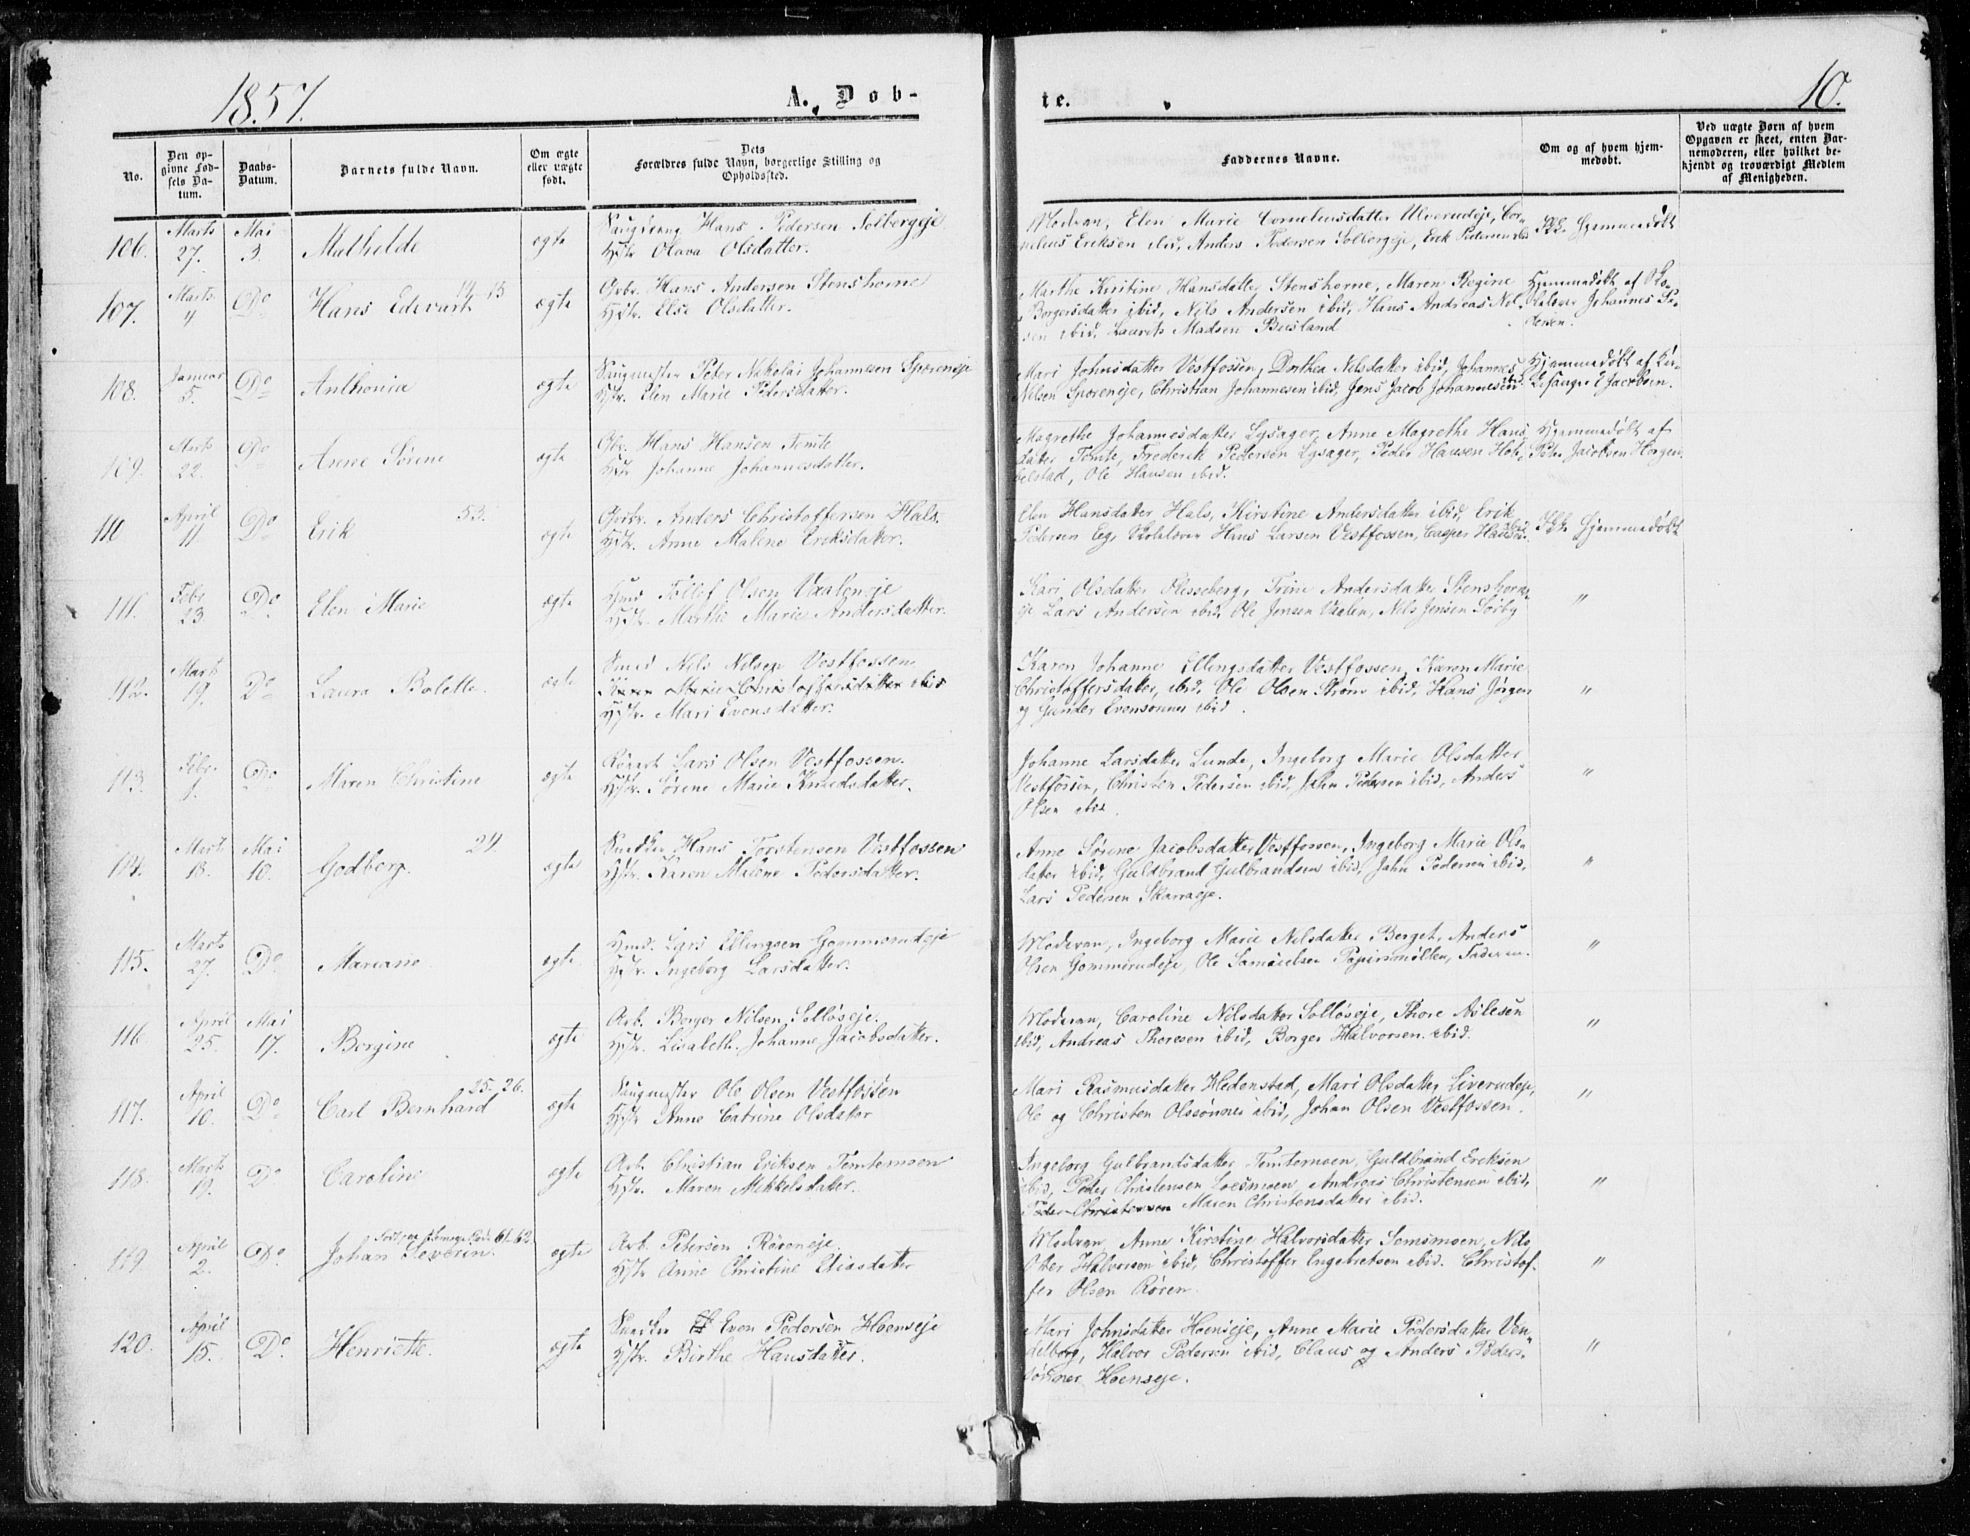 1857.
A. Døb-
te.
10.
No.
Den op-
givne Fød-
sels Da-
tum.
Daabs-
Datum.
Barnets fulde Navn.
Om ægte
eller uægte
født.
Dets
Forældres fulde Navn, borgerlige Stilling og
Opholdssted.
Faddernes Navne.
Om og af hvem hjem-
medøbt.
Ved uægte Børn af hvem
Opgaven er skeet, enten Bar-
nemoderen, eller hvilket be-
kjendt og troværdigt Medlem
af Menigheden.
106. Marts 27. Mai 3. Mathilde ægte
Hans Pedersen Solbergeje
Hstr. Olava Olsdatter.
Modran, Elen Marie Corneliusdatter Ulverudeje, Cor-
nelius Eriksen ibid, Anders Pedersen Solbergeje, Erik Pedersen ibid
Ikke Hjemmedøbt
107. Marts 4 Do Hans Edevart ægte
Gbr. Hans Andersen Stenshorne
Hstr. Else Olsdatter.
Marthe Kirstine Hansdatter Stenshorne, Maren Regine
Borgersdatter ibid, Nils Andersen ibid, Hans Andreas Nil-
sen ibid, Laurits Madsen
Hjemmedøbt af Sko-
lelærer Johannes Pe-
dersen.
108. Januar 5. Do Anthonia ægte
Saugmester Peter Nikolai Johannsen Sporeneje
Hstr. Elen Marie Pedersdatter.
Mari Johnsdatter Vestfossen, Dorthea Nilsdatter ibid, Johannes
Nilsen Sporeneje, Christian Johannesen ibid, Jens Jacob Johannesen ibid.
Hjemmedøbt af Kir-
kesanger E Jacobsen.
109. Marts 22. Do Anne Sørene ægte
Gbr. Hans Hansen Tomte
Hstr. Johanne Johannesdatter.
Magrethe Johannesdatter Lysager, Anne Magrethe Hans
datter Tomte, Frederik Pedersen Lysager, Peder Hansen Hob-
belstad, Ole Hansen ibid.
Hjemmedøbt af
Peder Jacobsen Horgen.
110 April 11 Do Erik 53. ægte
Gbr. Anders Christoffersen Hals.
Hstr. Anne Malene Eriksdatter.
Elen Hansdatter Hals, Kirstine Andersdatter ibid, Erik
Pedersen Eg, Skolelærer Hans Larsen Vestfossen, Casper Hansen
Ikke Hjemmedøbt
111. Febr 23. Do Elen Marie ægte
Hmd Tollif Olsen Vaaleneje
Hstr. Marthe Marie Andersdatter.
Kari Olsdatter Flesseberg, Trine Andersdatter Stenshorn-
eje Lars Andersen ibid, Ole Jensen Vaalen, Nils Jensen Sørby
"
112. Marts 19. Do Laura Bolette. ægte
Smed Nils Nilsen Vestfossen
Karen Marie Christoffersdatter ibid
Hstr. Mari Evensdatter.
Karen Johanne Ellingsdatter Vestfossen, Karen Marie
Christoffersdatter, ibid, Ole Olsen Strøm ibid, Hans Jørgen
og Gunder Evensønner ibid.
"
113. Febr. 1. Do Maren Christine ægte
Lars Olsen Vestfossen.
Hstr. Sørene Marie Knudsdatter.
Johanne Larsdatter Lunde, Ingeborg Marie Olsdatter
Vestfossen, Christen Pedersen ibid, John Pedersen ibid, Anders
Olsen ibid.
"
114. Marts 18. Mai 10. Godberg. 24 ægte
Snedker Hans Torstensen Vestfossen
Hstr. Karen Malene Pedersdatter.
Anne Sørene Jacobsdatter Vestfossen, Ingeborg Marie Ols-
datter ibid, Guldbrand Gulbrandsen ibid, John Pedersen ibid,
Lars Pedersen Skarraeje.
"
115. Marts 27. Do Mariane ægte
Hmd. Lars Ellingsen Gommerudeje
Hstr. Ingeborg Larsdatter.
Moderen, Ingeborg Marie Nilsdatter Berget, Anders
Olsen Gommerudeje, Ole Samuelsen Papirsmøllen, Faderen.
"
116. April 25. Mai 17. Borgine ægte
Arb. Borger Nilsen Solløseje.
Hstr. Lisabeth Johanne Jacobsdatter.
Moderen, Caroline Nilsdatter Solløseje, Thore Aslesen
ibid, Andreas Thoresen ibid, Borger Halvorsen ibid.
"
117. April 10. Do Carl Bernhard 25. 26. ægte
Saugmester Ole Olsen Vestfossen
Hstr Anne Catrine Olsdatter
Mari Rasmusdatter Hedenstad, Mari Olsdatter Liverudeje,
Ole og Christen Olssønner ibid, Johan Olsen Vestfossen.
"
118. Marts 19. Do Caroline ægte
Arb. Christian Eriksen Temtemoen
Hstr. Maren Mikkelsdatter.
Ingeborg Gulbrandsdatter Temtemoen, Guldbrand Eriksen
ibid, Peder Christensen Loesmoen, Andreas Christensen ibid,
Peder Christensen Maren Christensdatter ibid.
"
119 April 2. Do Johan Severin. 61.62. ægte
Arb. Petersen Røreneje.
Hstr Anne Christine Eliasdatter
Modran Anne Kirstine Halvorsdatter Semsmoen, Nils
Peter Halvorsen ibid, Christoffer Engebretsen ibid. Christof-
fer Olsen Røren.
"
120. April 15. Do. Henriette. ægte
Snedker Even Pedersen Hoenseje
Hstr. Birthe Hansdatter.
Mari Johnsdatter Hoenseje, Anne Marie Pedersdatter Ven-
delborg, Halvor Pedersen ibid, Claus og Anders Peders-
sønner Hoenseje.
"